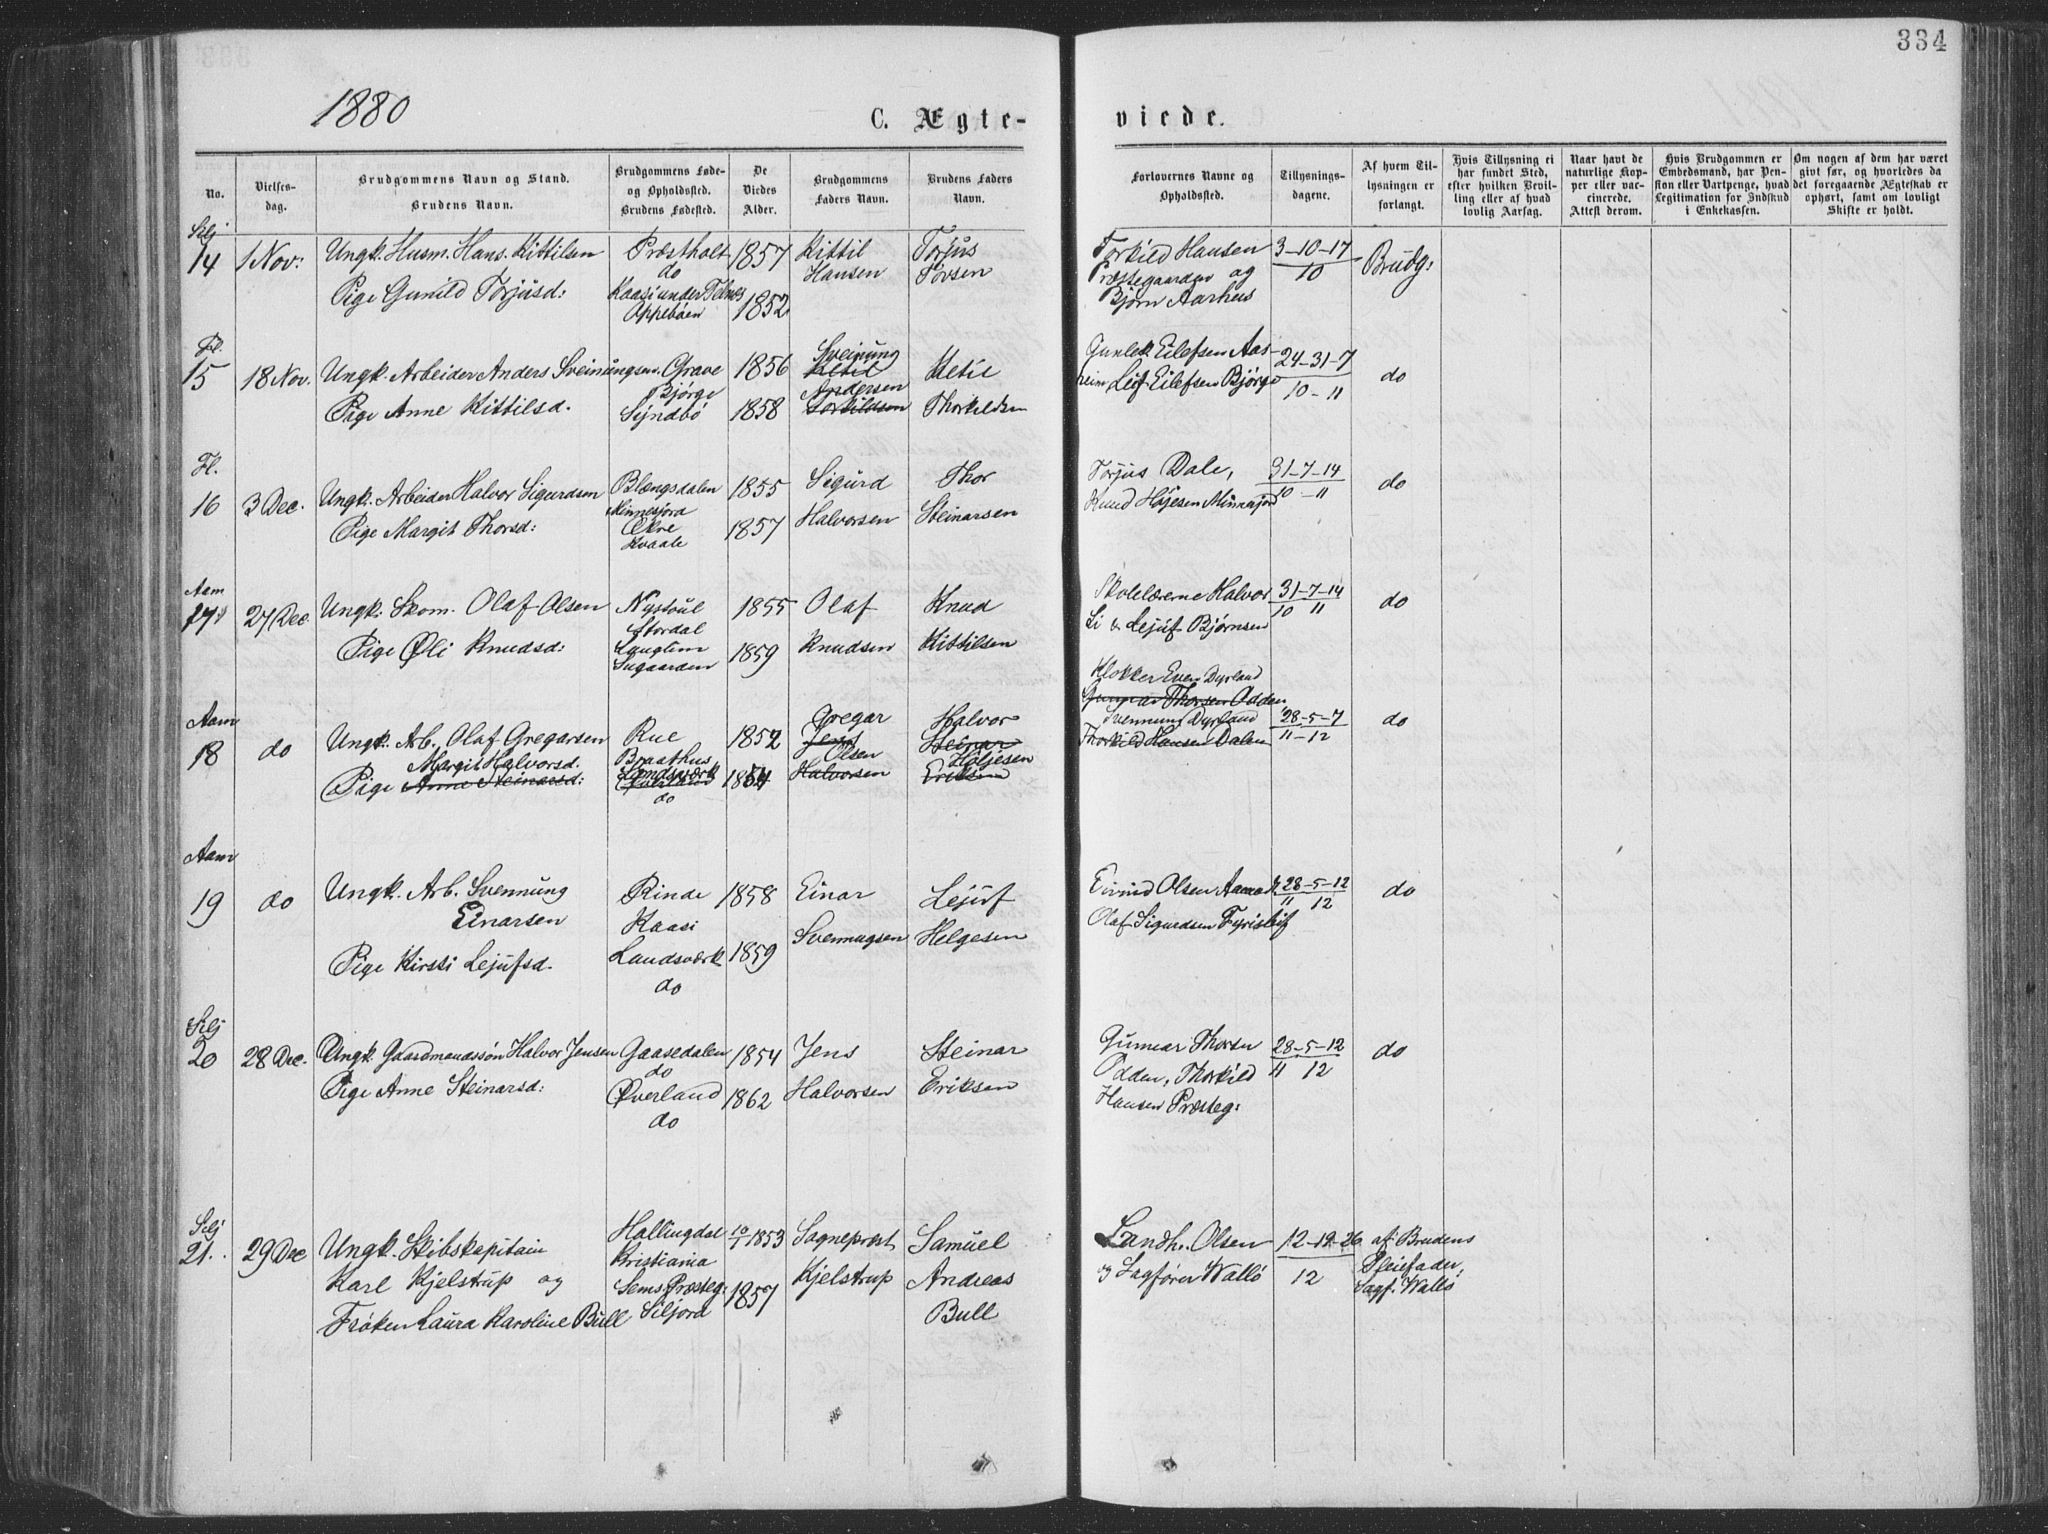 334
1880
C. Ægte-
viede.
No.
Vielses-
dag.
Brudgommens Navn og Stand.
Brudens Navn.
Brudgommens Føde-
og Opholdssted.
Brudens Fødested.
De
Viedes
Alder.
Brudgommens
Faders Navn.
Brudens Faders
Navn.
Forlovernes Navne og
Opholdssted.
Tillysnings-
dagene.
Af hvem Til-
lysningen er
forlangt.
Hvis Tillysning ei
har fundet Sted,
efter hvilken Bevil-
ling eller af hvad
lovlig Aarsag.
Naar havt de
naturlige Kop-
per eller vac-
cinerede.
Attest derom.
Hvis Brudgommen er
Embedsmand, har Pen-
sion eller Vartpenge, hvad
Legitimation for Indskud
i Enkekassen.
Om nogen af dem har været
givt før, og hvorledes da
det foregaaende Ægteskab er
ophørt, samt om lovligt
Skifte er holdt.
Selj
14 1 Nov: Ungk. Husm. Hans Kittilsen Præstholt 1857 Kittil Torjus Torkild Hansen 3-10-17 Brudg:
do Hansen Tovsen Præstegaarden og 10
Pige Gunild Torjusd: Kaasi under Telnes 1852 Bjørn Aarhus
Oppebøen
Fl.
15 18 Nov. Ungk. Arbeider Anders Sveinungsen Grave 1856 Sveinung Ketil Ketil Gunlek Eilefsen Aas- 24-31-7 do
Bjørge Andersen heim Leif Eilefsen Bjørge 10-11
Pige Anne Kittilsd. Syndbø 1858 Torkildsen Thorkildsen
Fl.
16 3 Dec. Ungk. Arbeider Halvor Sigurdsen Blængsdalen 1855 Sigurd Thor Torjus Dale, 31-7-14 do
Minnesjord Knud Højesen Minnesjord 10-11
Pige Margit Thorsd: Økre 1857 Halvorsen Steinarsen
Kvaale
Aam
17 27 Dec. Ungk. Skom. Olaf Olsen Nystøul 1855 Olaf Knud Skolelærerne Halvor 31-7-14 do
Stordal Li & Lejuf Bjørnsen 10 11
Pige Øli Knudsd: 1859 Knudsen Kittilsen
Sugaarden
Aam
18 do Ungk. Arb. Olaf Gregarsen Rue 1852 Gregar Jens Halvor Steinar Klokker Even Dyrland
Gunnar Thorsen Odden
Svennung Dyrland 28-5-7 do
Thorkild Hansen Dalen 11-12
Margit Halvorsd. Braathus Olsen Høljesen
Pige Anne Steinarsd: Landsværk Øverland 18 Halvorsen Eriksen
do
Aam
19 do Ungk. Arb. Svennung Rinde 1858 Einar Lejuf Eivind Olsen 28-5-12 do
Einarsen Kaasi Olaf Sigurdsen 11 12
Svennugsen Helgesen
Pige Kirsti Lejufsd. Landsværk 1859
do
Selj
20 28 Dec. Ungk. Gaardmandssøn Halvor Jensen Gaasedalen 1854 Jens Steinar Gunnar Thorsen 28-5-12 do
do Odden, Thorkild 11 12
Pige Anne Steinarsd: Øverland 1862 Halvorsen Eriksen Hansen Præsteg:
do
Selj
21. 29 Dec Ungk. Skibskapitain Hallingdal 10/1 1853 Sogneprest Samuel Landh. Olsen 12-19-26 af Brudens
Karl Kjelstrup og Kristiania Kjelstrup Andreas og Sagfører Wallø 12 Pleiefader,
Sems Præsteg: 1857 Sagf. Wallø
Frøken Laura Karoline Bull Siljord Bull